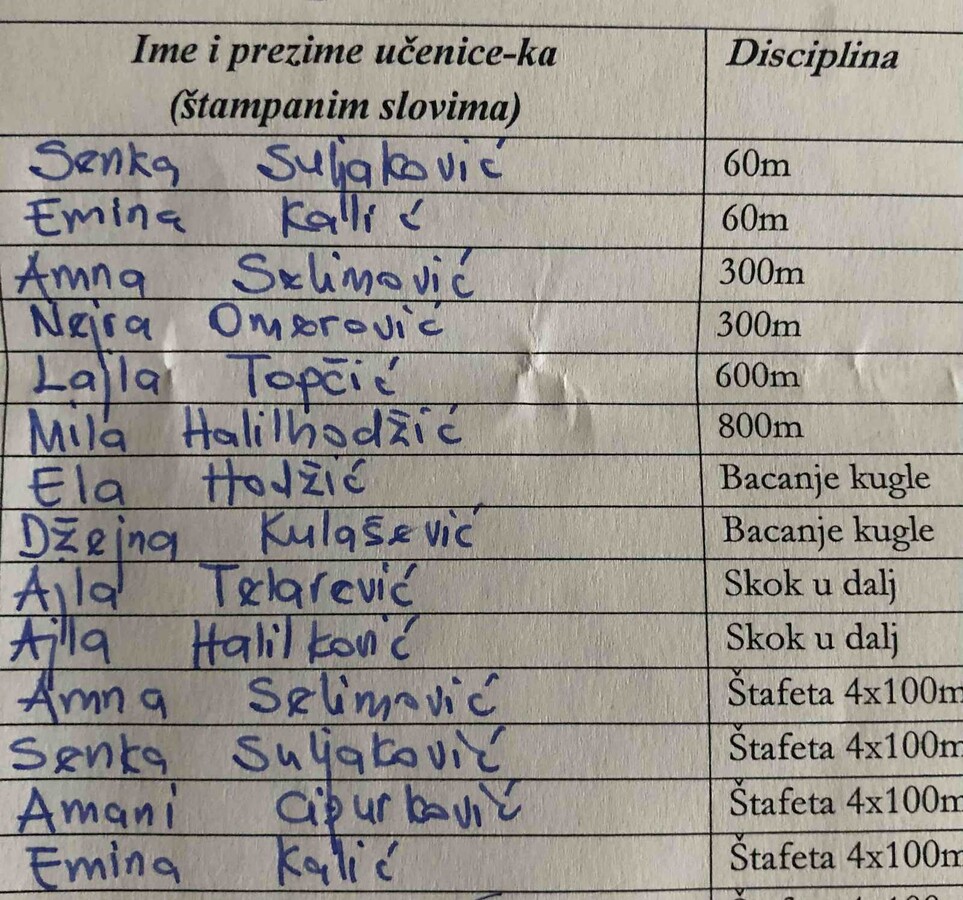 Ime i prezime učenice-ka Disciplina
(štampanim slovima)
Senka Suljaković 60m
Emina Kallić 60m
Amna Selimović 300m
Nejra Omerović 300m
Lajla Topčić 600m
Mila Halilhodžić 800m
Ela Hodžić Bacanje kugle
Džejna Kulašević Bacanje kugle
Ajla Telarević Skok u dalj
Ajlla Halilković Skok u dalj
Amna Selimović Štafeta 4x100m
Senka Suljaković Štafeta 4x100m
Amani Cipurković Štafeta 4x100m
Emina Kalić Štafeta 4x100m